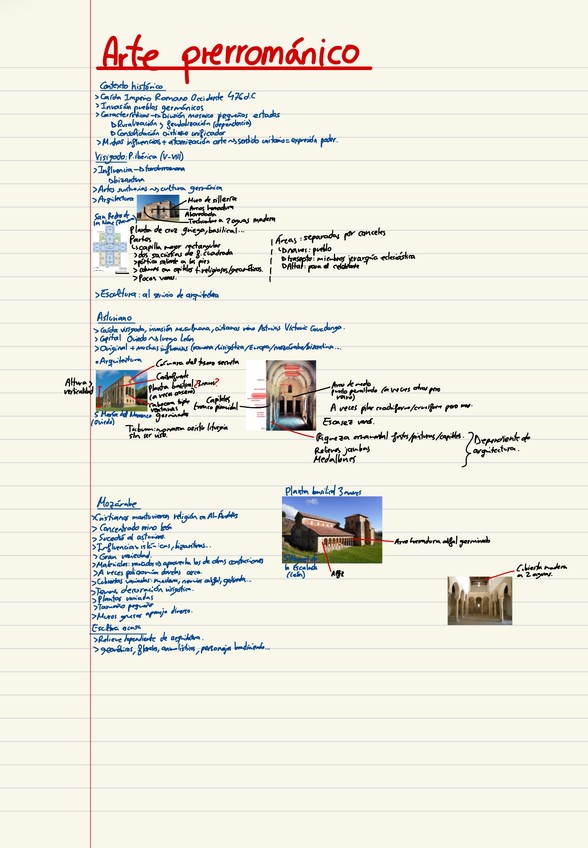 Arte prerrománico
Contexto histórico
> Caída Imperio Romano Occidente 476 d.C
> Invasión pueblos germánicos
> Características → División mosaico pequeños estados
↳ Ruralización y feudalización (dependencia)
↳ Consolidación cristiano unificador
> Muchas influencias + atomización arte → sentido unitario = expresión poder.
Visigodo: P. Ibérica (V-VIII)
> Influencia → tardorromana
↳ bizantina
> Artes suntuarias → cultura germánica
> Arquitectura
Muro de sillería
Arcos herradura
Abovedada
Techumbre a 2 aguas madera
San Pedro de la Nave
Planta de cruz griega, basilical...
Partes
↳ capilla mayor rectangular
↳ dos sacristías de p. cuadrada
↳ pórtico saliente a los pies
↳ columnas con capiteles + religiosos/geométricos.
> Pocos vanos.
Áreas: separadas por canceles
↳ naves: pueblo
↳ transepto: miembros jerarquía eclesiástica
↳ Altar: para el celebrante
> Escultura: al servicio de arquitectura
Asturiano
> Caída visigoda, invasión musulmana, cristianos reino Asturias Victoria Covadonga.
> Capital Oviedo → luego León
> Original + muchas influencias (romana/visigótica/Europa/mozárabe/bizantina...
• Arquitectura
Cámara del tesoro secreta
Contrafuerte
Planta basilical 3 naves?
(a veces crucero)
ventanas
geminadas
Altura y verticalidad
S. María del Naranco (Oviedo)
Tribuna → monarca asistía liturgia
sin ser visto.
Capiteles
tronco piramidal
Arco de medio
punto peraltado (a veces otros pero
raro)
A veces pilar cruciforme/cruciforme pero mas.
Escasez vanos.
Riqueza ornamental fustes/pinturas/capiteles.
Relieves jambas
Medallones
Dependiente de
arquitectura.
Mozárabe
> Cristianos mantuvieron religión en Al-Ándalus
> Concentrado reino León
> Sucedió al asturiano.
> Influencias: islámicas, hispanas...
> Gran variedad.
> Materiales: variados → aprovecha los de otras construcciones
> A veces policromía dovelas arco.
> Cubiertas variadas: madera, nervios califal, gallonada...
> Toma decoración visigótica.
> Plantas variadas
> Tamaño pequeño
> Muros gruesos aparejo diverso.
Escultura escasa
> Relieve dependiente de arquitectura.
> geométricos, florales, animalísticos, personajes
Planta basilical 3 naves
Arco herradura califal geminado
la Escalada
(León)
Alfiz
Cubierta madera
a 2 aguas.